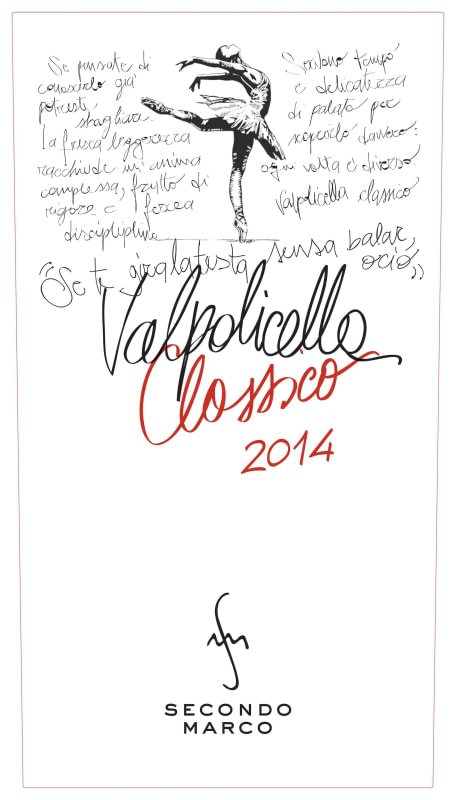 Se pensate di
conoscerlo già
potreste
sbagliare.
la fresca leggerezza
racchiude un'anima
complessa, frutto di
rigore e ferrea
disciplina
Servono tempo
e delicatezza
di palato per
scoprirlo davvero:
ogni volta è diverso
Valpolicella classico
"Se ti gira la testa sensa balar,
ocio"
Valpolicella
Classico
2014
SECONDO
MARCO